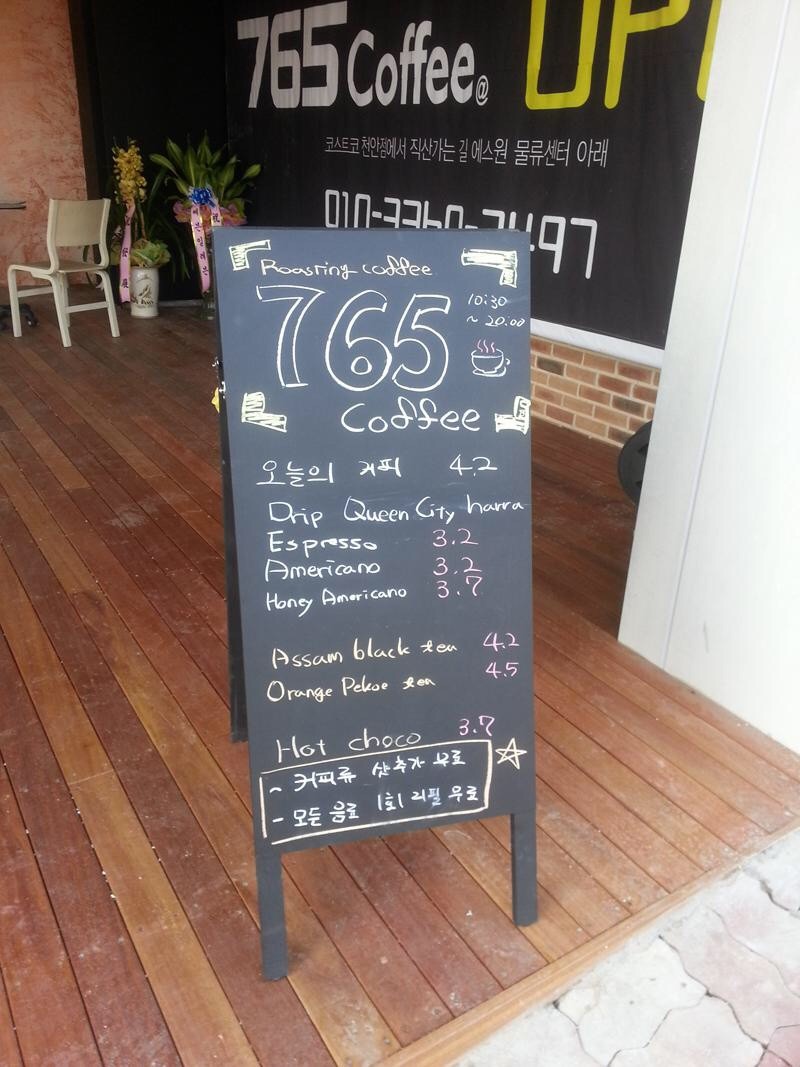 765 Coffee@ OP
코스트코 천안점에서 직산가는 길 에스원 물류센터 아래
Roasting coffee
10:30
~ 20:00
765
coffee
오늘의 커피 4.2
Drip Queen City harra
Espresso 3.2
Americano 3.2
Honey Americano 3.7
Assam black tea 4.2
Orange Pekoe tea 4.5
Hot choco 3.7
~ 커피류 샷추가 무료
- 모든 음료 1회 리필 무료